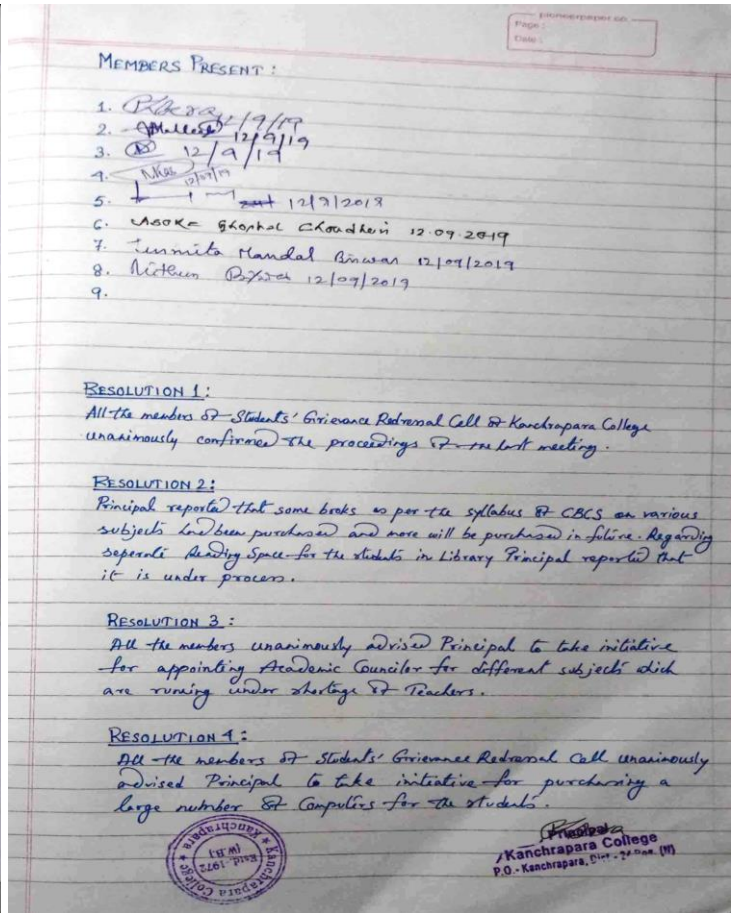 pioneerpaper.co
Page :
Date :
MEMBERS PRESENT :
1. 12/9/19
2. 12/9/19
3. 12/9/19
4. 12/09/19
5. 12/9/2018
6. ASOKE Ghoshal Choudhuri 12.09.2019
7. Mandal Biswas 12/09/2019
8. Mithun 12/09/2019
9.
RESOLUTION 1:
All the members of Students' Grievance Redressal Cell of Kanchrapara College
unanimously confirmed the proceedings of the last meeting.
RESOLUTION 2:
Principal reported that some books as per the syllabus of CBCS on various
subjects had been purchased and more will be purchased in future. Regarding
seperate Reading Space for the students in Library Principal reported that
it is under process.
RESOLUTION 3:
All the members unanimously advised Principal to take initiative
for appointing Academic Councilor for different subjects which
are running under shortage of Teachers.
RESOLUTION 4:
All the members of Students' Grievance Redressal Cell unanimously
advised Principal to take initiative for purchasing a
large number of Computers for the students.
Kanchrapara College * Kanchrapara *
Estd.-1972
(W.B.)
Principal
Kanchrapara College
P.O.- Kanchrapara, Dist - 24 Pgs. (N)